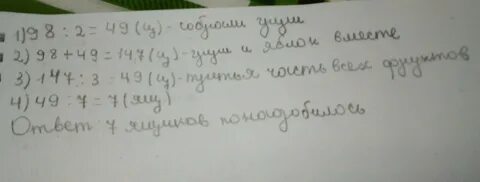 1) 98 : 2 = 49 (ц) - собрали груш
2) 98 + 49 = 147 (ц) - груш и яблок вместе
3) 147 : 3 = 49 (ц) - третья часть всех фруктов
4) 49 : 7 = 7 (ящ)
Ответ: 7 ящиков понадобилось